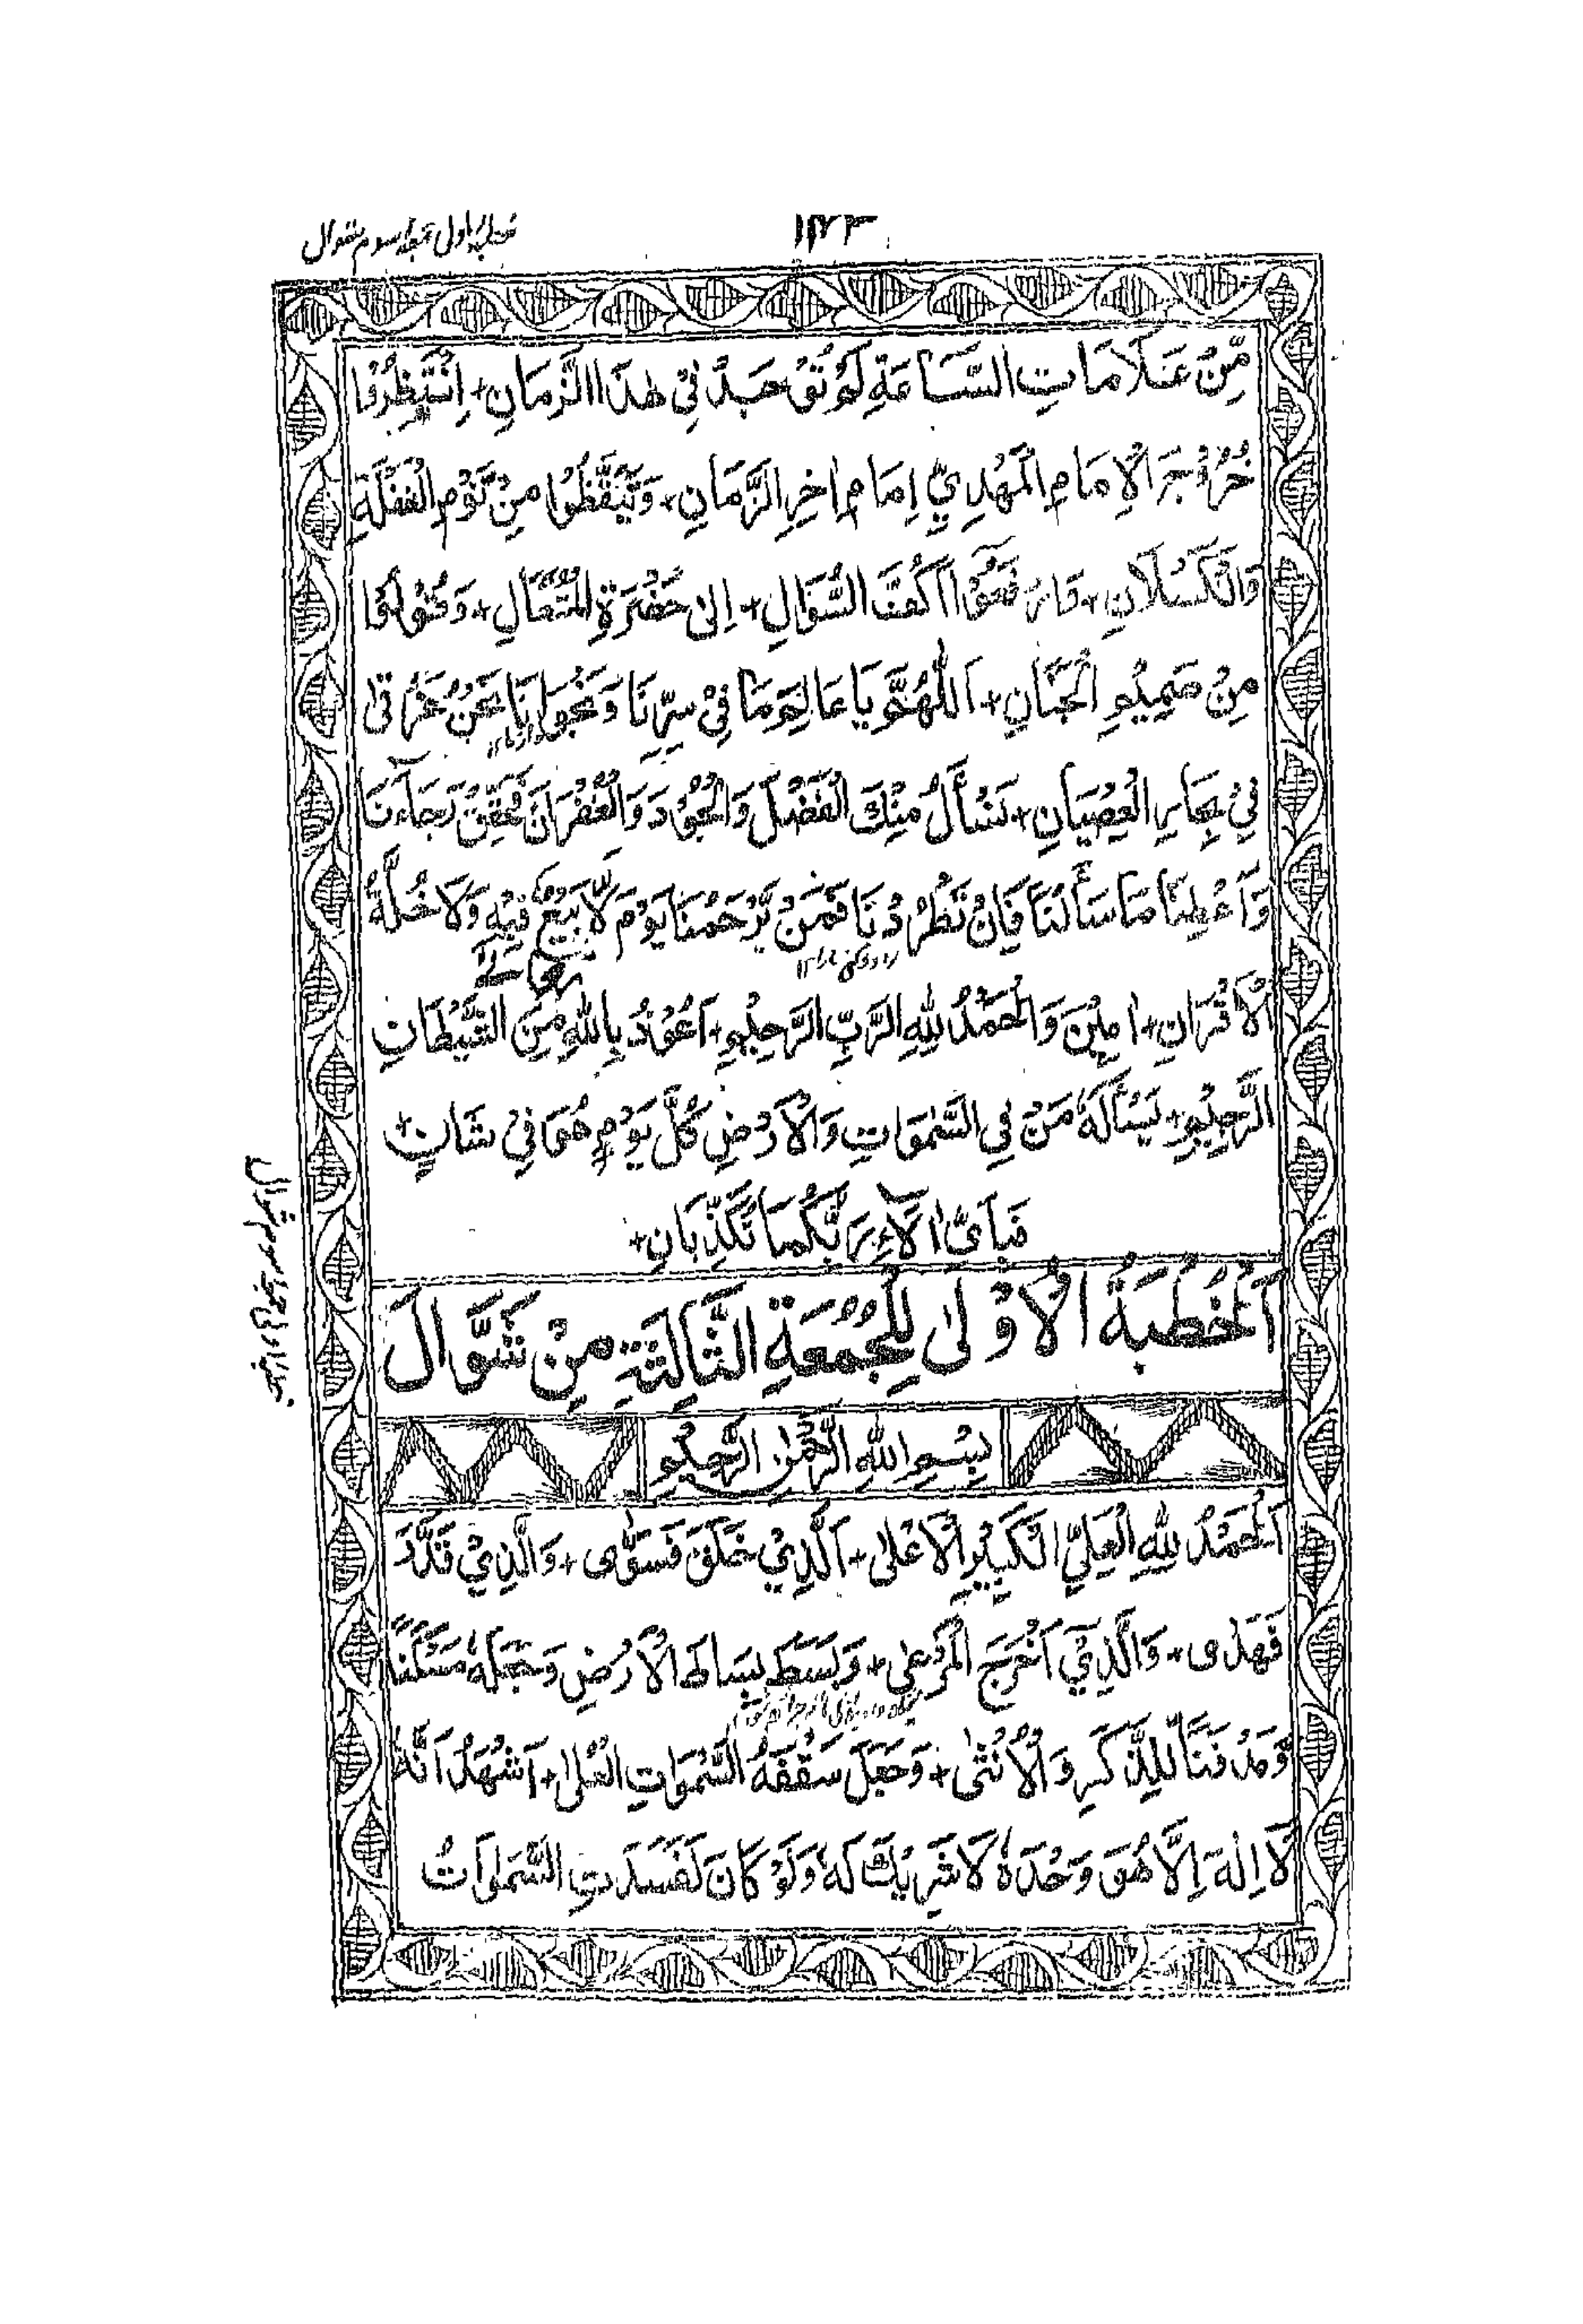 ١٢٣
خطبۂ اول جمعۂ سوم شوال
مِّنْ عَلَامَاتِ السَّاعَةِ لَمْ تُوْجَدْ فِيْ هٰذَا الزَّمَانِ + اِنْتَظِرُوْا
خُرُوْجَ الْاِمَامِ الْمَهْدِيِّ اِمَامِ اٰخِرِ الزَّمَانِ + وَتَيَقَّظُوْا مِنْ نَوْمِ الْغَفْلَةِ
وَالْكَسْلَانِ + فَارْفَعُوْا اَكُفَّ السُّؤَالِ + اِلٰى حَضْرَةِ الْمُتَعَالِ + وَقُوْلُوْا
مِنْ صَمِيْمِ الْجَنَانِ + اَللّٰهُمَّ يَا عَالِمَ مَا فِيْ سِرِّنَا وَنَجْوَانَا نَحْنُ غَرْقٰى
فِيْ بِحَارِ الْعِصْيَانِ + نَسْأَلُ مِنْكَ الْفَضْلَ وَالْجُوْدَ وَالْغُفْرَانَ فَحَقِّقْ رَجَاءَنَا
وَاَعْطِنَا مَا سَأَلْنَا فَاِنْ تَطْرُدْنَا فَمَنْ يَّرْحَمُنَا يَوْمَ لَا بَيْعٌ فِيْهِ وَلَا خُلَّةُ
الْاَقْرَانِ + اٰمِيْنَ وَالْحَمْدُ لِلّٰهِ الرَّبِّ الرَّحِيْمِ + اَعُوْذُ بِاللّٰهِ مِنَ الشَّيْطَانِ
الرَّجِيْمِ + يَسْأَلُهٗ مَنْ فِي السَّمٰوَاتِ وَالْاَرْضِ كُلَّ يَوْمٍ هُوَ فِيْ شَانٍ +
فَبِاَيِّ اٰلَآءِ رَبِّكُمَا تُكَذِّبَانِ +
اَلْخُطْبَةُ الْاُوْلٰى لِلْجُمُعَةِ الثَّالِثَةِ مِنْ شَوَّالَ
بِسْمِ اللّٰهِ الرَّحْمٰنِ الرَّحِيْمِ
اَلْحَمْدُ لِلّٰهِ الْعَلِيِّ الْكَبِيْرِ الْاَعْلٰى + اَلَّذِيْ خَلَقَ فَسَوّٰى + وَالَّذِيْ قَدَّرَ
فَهَدٰى + وَالَّذِيْٓ اَخْرَجَ الْمَرْعٰى + وَبَسَطَ بِسَاطَ الْاَرْضِ وَجَعَلَهٗ مَسْكَنًا
وَّمَدْفَنًا لِّلذَّكَرِ وَالْاُنْثٰى + وَجَعَلَ سَقْفَهُ السَّمٰوَاتِ الْعُلٰى + اَشْهَدُ اَنَّهٗ
لَا اِلٰهَ اِلَّا هُوَ وَحْدَهٗ لَا شَرِيْكَ لَهٗ وَلَوْ كَانَ لَفَسَدَتِ السَّمٰوَاتُ